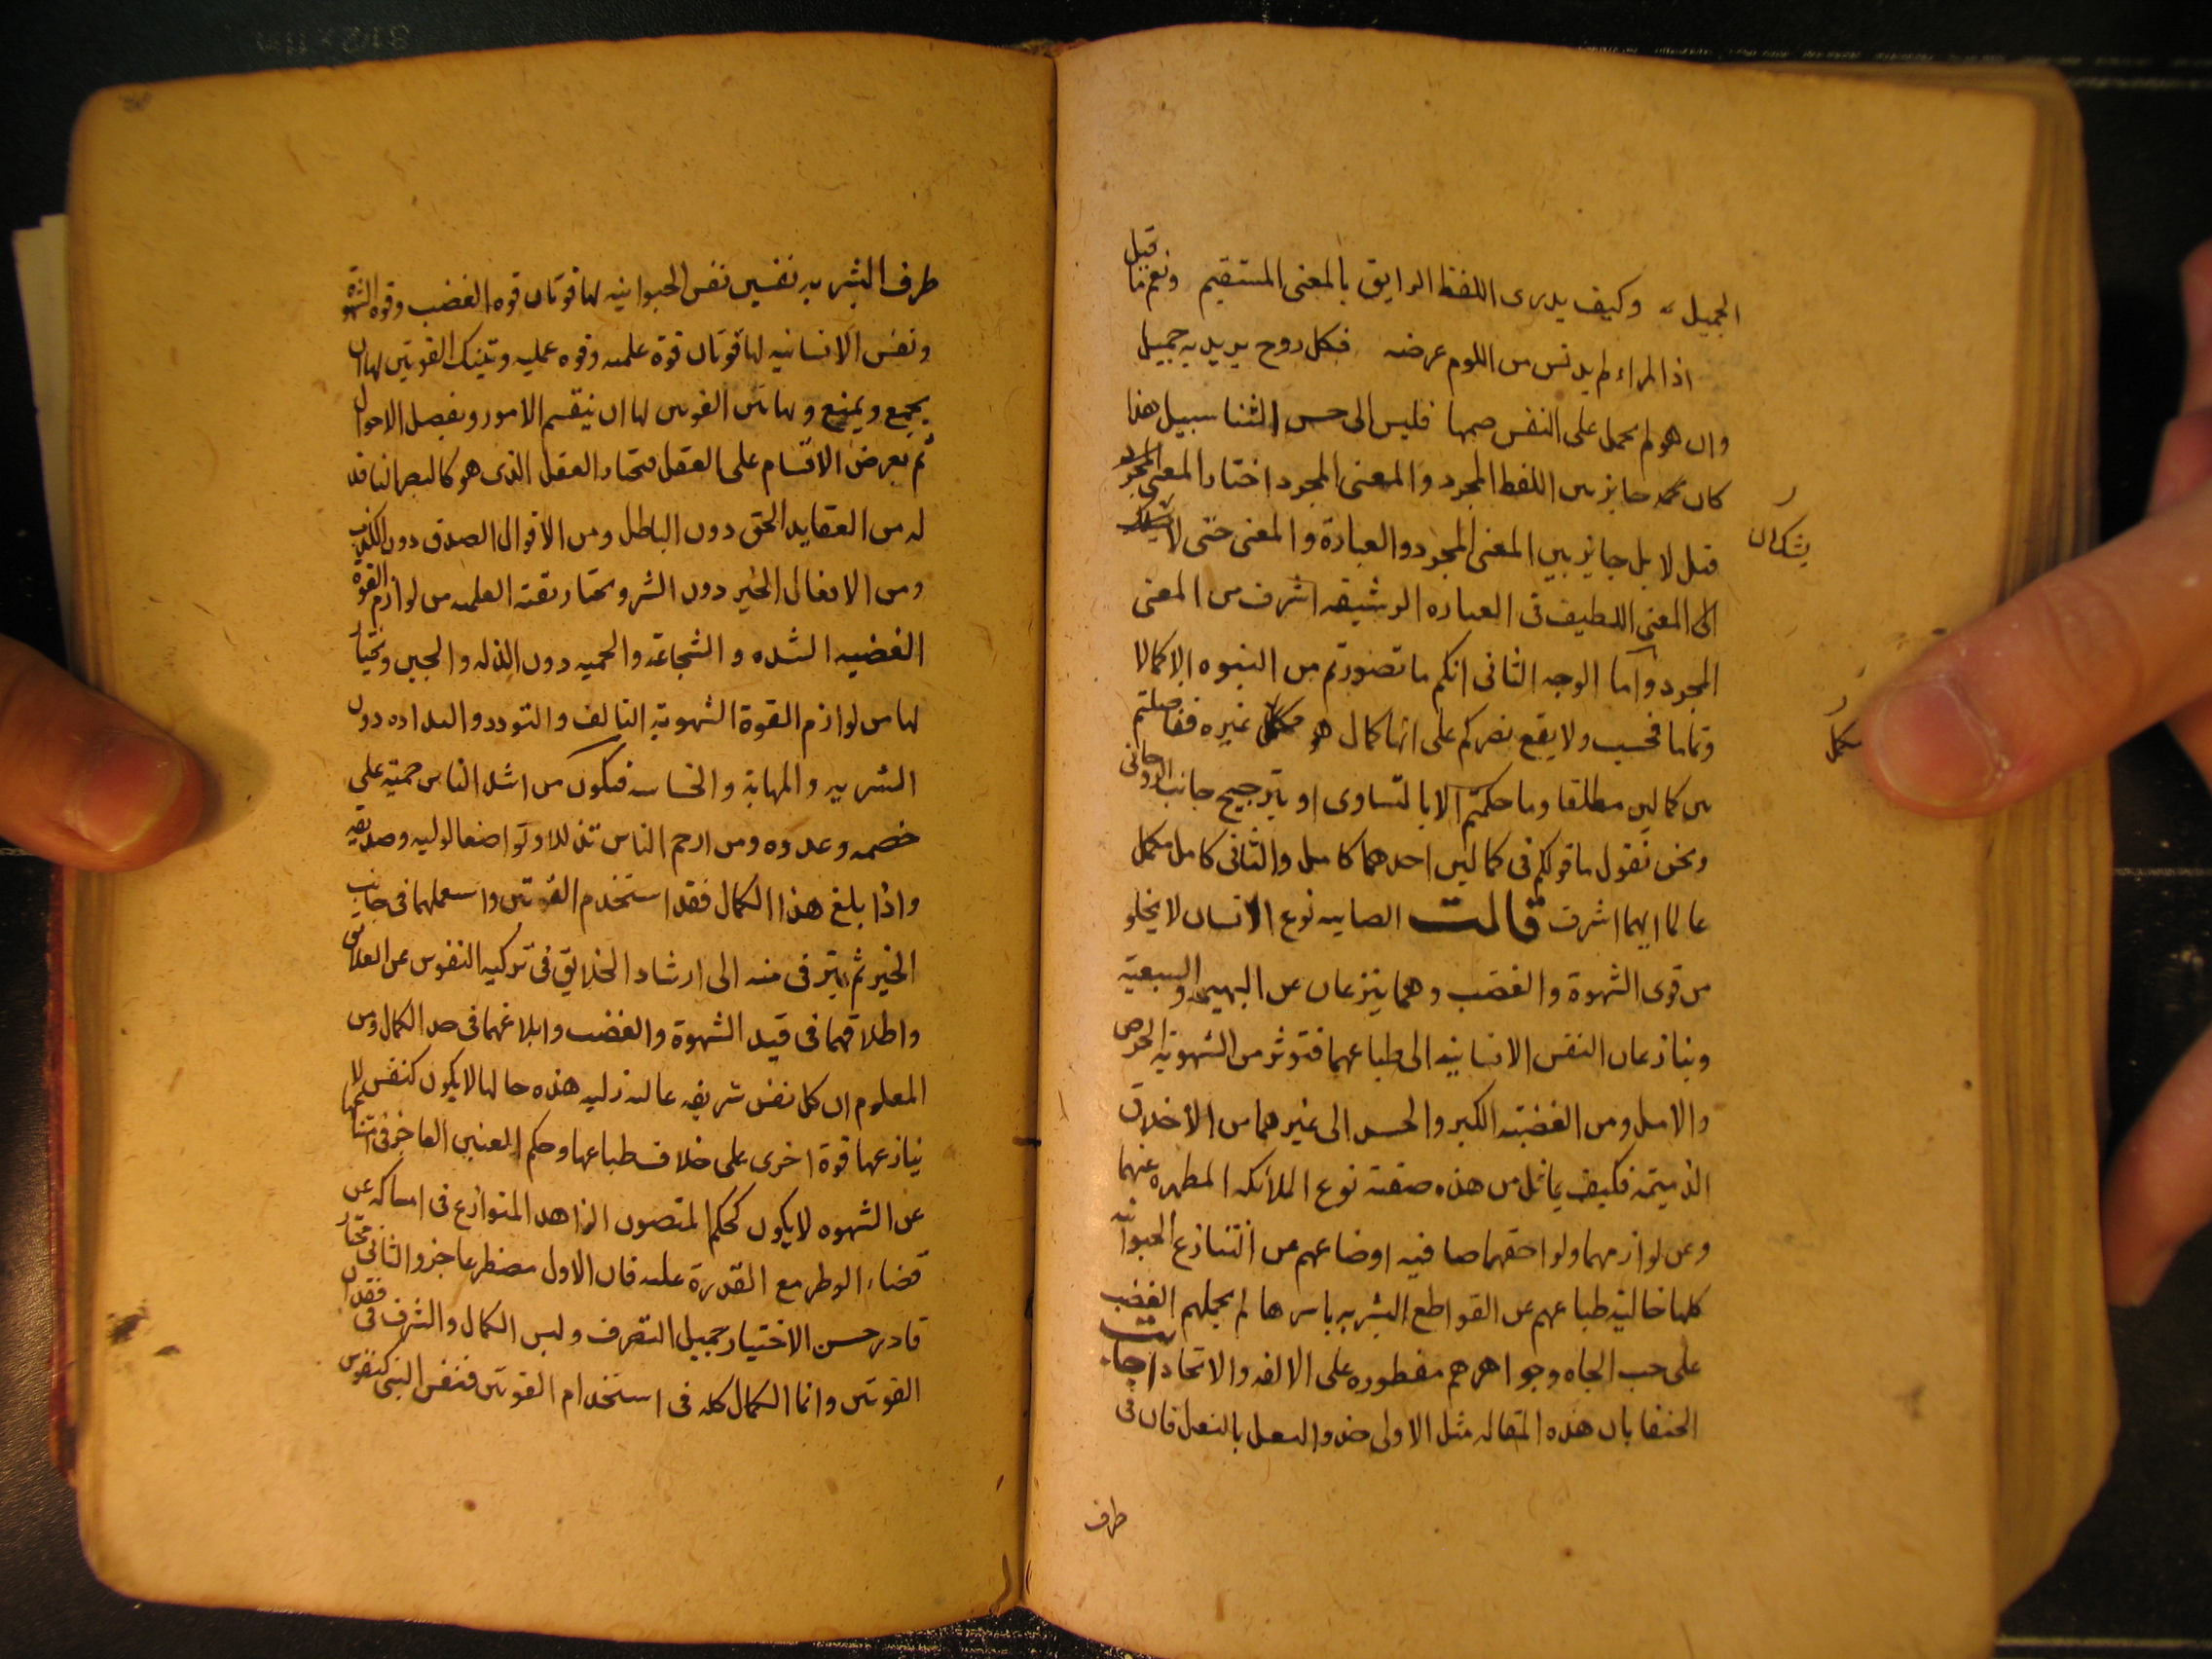 الجميل وكيف يدرى اللفظ الرايق بالمعنى المستقيم ونعم ما قيل
اذا المراء لم يدنس من اللوم عرضه فكل روح يريد به جميل
وان هو لم يحمل على النفس ضمها فليس الى حسن الثنا سبيل هذا
كان حايز بين اللفظ المجرد والمعنى المجرد اختار المعنى المجرد
قيل لا بل حايز بين المعنى المجرد والعبارة والمعنى حتى لا يشك ان
المعنى اللطيف فى العباره الرشيقه اشرف من المعنى
المجرد واما الوجه الثانى انكم ما تصورتم من النبوه الا كمالا
وتماما فحسب ولا يقع بصركم على انها كمال هو مكمل غيره ففاضلتم
بين كمالين مطلقا وما حكمتم الا بالتساوى او بترجيح جانب الروحانى
ونحن نقول ما قولكم فى كمالين احدهما كامل والثانى كامل مكمل
عالما ايهما اشرف قالت الصابيه نوع الانسان لا يخلو
من قوى الشهوة والغضب وهما ينزعان عن البهيمه والسبعية
وينازعان النفس الانسانيه الى طباعهما فتوثر من الشهوية الحرص
والامل ومن الغضبيه الكبر والحسد الى غيرهما من الاخلاق
الذميمه فكيف يماثل من هذه صفته نوع الملائكه المطهره عنهما
وعن لوازمهما ولواحقهما صافيه اوضاعهم عن التنازع الحيوانيه
كلها خاليه طباعهم عن القواطع البشريه باسرها لم يحملهم الغضب
على حب الجاه وجواهرهم مفطوره على الالفه والاتحاد اجابت
الحنفا بان هذه المقاله مثل الاولى حذو النعل بالنعل فان فى
طرف
يشك ان
مكمل
طرف البشريه نفسين نفس الحيوانيه لها قوتان قوه الغضب وقوه الشهوة
ونفس الانسانيه لها قوتان قوة علميه وقوه عمليه وبتينك القوتين لها ان
يجمع ويمنع وبهاتين القوتين لها ان يقسم الامور ويفصل الاحوال
ثم يعرض الاقسام على العقل فيختار العقل الذى هو كالبصر النافذ
له من العقايد الحق دون الباطل ومن الاقوال الصدق دون الكذب
ومن الافعال الخير دون الشر ويختار بقوته العلميه من لوازم القوة
الغضبيه الشده والشجاعة والحميه دون الذله والجبن ويختار
لها من لوازم القوة الشهوية التالف والتودد والبداده دون
الشره والمهانة والخساسه فيكون من اشد الناس حمية على
خصمه وعدوه ومن ارحم الناس تذللا وتواضعا لوليه وصديقه
واذا بلغ هذا الكمال فقد استخدم القوتين واستعملهما فى جانب
الخير ثم يترقى منه الى ارشاد الخلايق فى تزكيه النفوس عن العلايق
واطلاقهما فى قيد الشهوة والغضب وابلاغهما فى حد الكمال ومن
المعلوم ان كل نفس شريفه عاليه زكيه هذه حالها لا يكون كنفس لا
ينازعها قوة اخرى على خلاف طباعها وحكم العنين العاجز فى امتناعه
عن الشهوه لا يكون كحكم المتصون الزاهد المتوارع فى امساكه عن
قضاء الوطر مع القدرة عليه فان الاول مضطر عاجز والثانى مختار
قادر حسن الاختيار جميل التصرف وليس الكمال والشرف فى فقدان
القوتين وانما الكمال كله فى استخدام القوتين فنفس النبى كنفوس